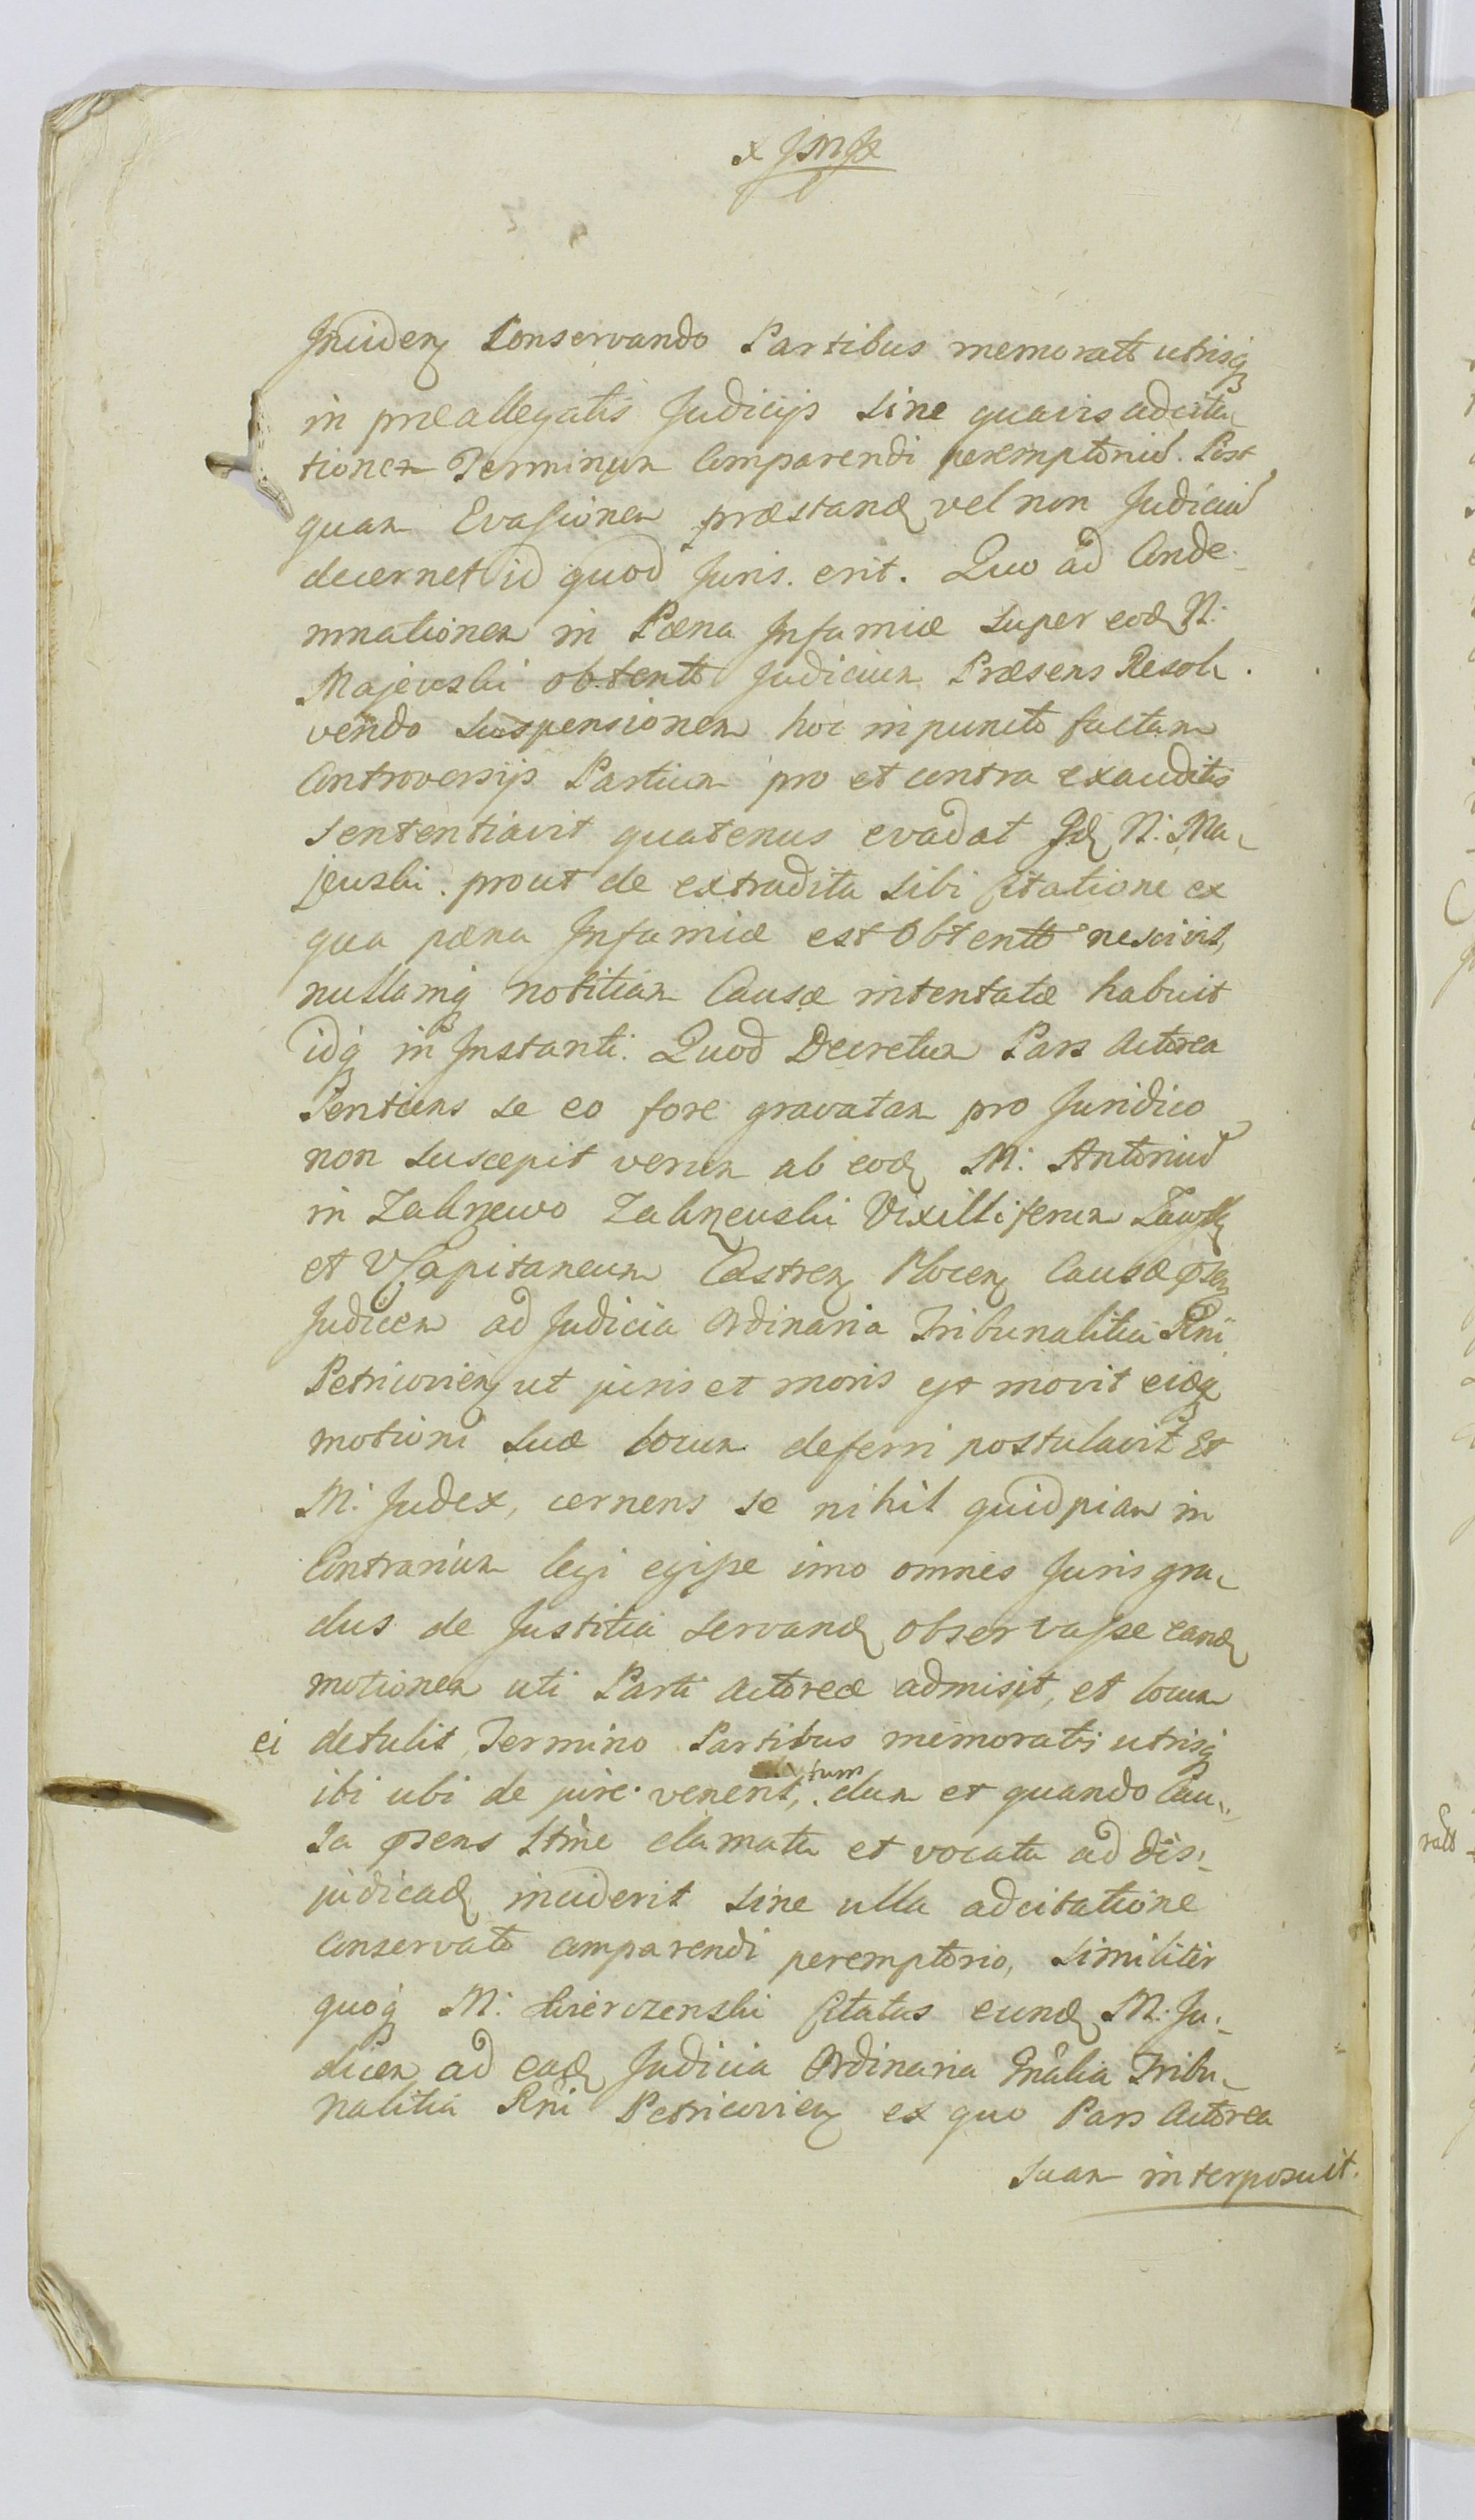 Inciden Conservando Partibus memoratt utrisq
in præallegatis Judicijs sine quavis adcita-
tionem Terminum Comparendi peremptoriū. Post
quam Evasionem præstand vel non Judiciū
decernet id quod Juris erit. Quo ad Conde-
mnationem in Pæna Infamiæ super eod N:
Majewski obtentt Judicium Præsens Resol-
vendo suspensionem hoc in puncto factam
Controversijs Partium pro et contra exauditis
sententiavit quatenus evadat Id N: Ma-
jewski prout de extradita sibi Citatione ex
qua pæna Infamiæ est obtentt nescivit,
nullamq notitiam Causæ intentatæ habuit
idq in Instanti. Quod Decretum Pars Actorea
Sentiens se eo fore gravatam pro Juridico
non suscepit verum ab eod M: Antoniū
in Vexilliferum
et V Capitaneum Castren Plocen Causæ psen
Judicem ad Judicia Ordinaria Tribunalitia Rni
Petricovien ut juris et moris est movit eidq
motioni suæ locum deferri postulavit Et
M: Judex, cernens se nihil quidpiam in
Contrarium legi egisse imo omnes Juris gra-
dus de Justitia servand observasse eand
motionem uti Parti Actoreæ admisit, et locum
ei detulit, Termino Partibus memoratis utrisq
ibi ubi de jure venerit, tum dum et quando Cau-
sa psens sine clamata et vocata ad dis-
judicad inciderit sine ulla adcitatione
Conservato comparendi peremptorio, similiter
quoq M: Swierczenski Citatus eund M: Ju-
dicem ad ead Judicia Ordinaria Gnalia Tribu-
nalitia Rni Petricovien ex quo Pars Actorea
suam interposuit.